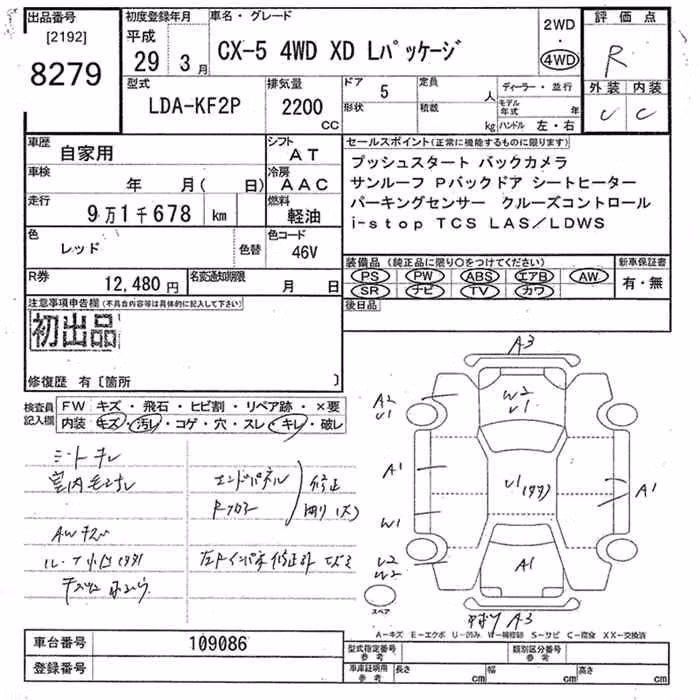 出品番号
[2192]
8279
初度登録年月
平成
29 3月
車名・グレード
CX-5 4WD XD Lパッケージ
2WD
・
4WD
評価点
R
外装 内装
C C
型式
LDA-KF2P
排気量
2200
CC
ドア 5
形状
定員 人
積載 kg
ディーラー・並行
モデル年式 年
ハンドル 左・右
車歴
自家用
シフト
AT
車検 年 月( 日)
冷房
AAC
走行
9万1千678 km
燃料
軽油
色
レッド
色替
色コード
46V
R券
12,480円
名変通知期限
月 日
セールスポイント(正常に機能するものに限ります)
プッシュスタート バックカメラ
サンルーフ Pバックドア シートヒーター
パーキングセンサー クルーズコントロール
i-stop TCS LAS/LDWS
装備品(純正品に限り○をつけてください)
PS PW ABS エアB AW
SR ナビ TV カワ
新車保証書
有・無
後日品
注意事項申告欄(不具合内容等は具体的に記入して下さい)
初出品
修復歴 有〔箇所 〕
検査員記入欄
FW キズ・飛石・ヒビ割・リペア跡・×要
内装 キズ・汚レ・コゲ・穴・スレ・キレ・破レ
シートキレ
エンドパネル
修正
AWキズ
A3
A2
U1
W2
U1
A1
W1
U2
W2
U1
A1
A1
A3
スペア
A-キズ E-エクボ U-凹み W-補修跡 S-サビ C-腐食 XX-交換済
車台番号 109086
登録番号
型式指定番号
参考
類別区分番号
参考
車庫証明用
参考
長さ cm 幅 cm 高さ cm